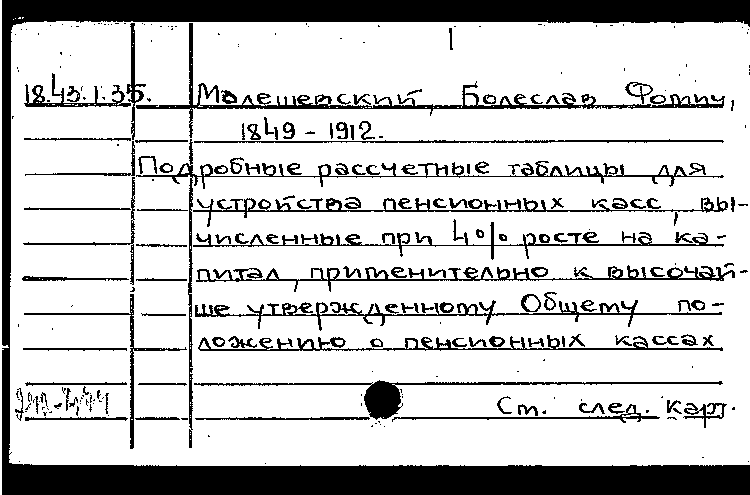 1
18.43.1.35. Малешевский, Болеслав Фомич,
1849 - 1912.
Подробные рассчетные таблицы для
устройства пенсионных касс, вы-
численные при 4% росте на ка-
питал, применительно к высочай-
ше утвержденному Общему по-
ложению о пенсионных кассах
Ст. след. карт.